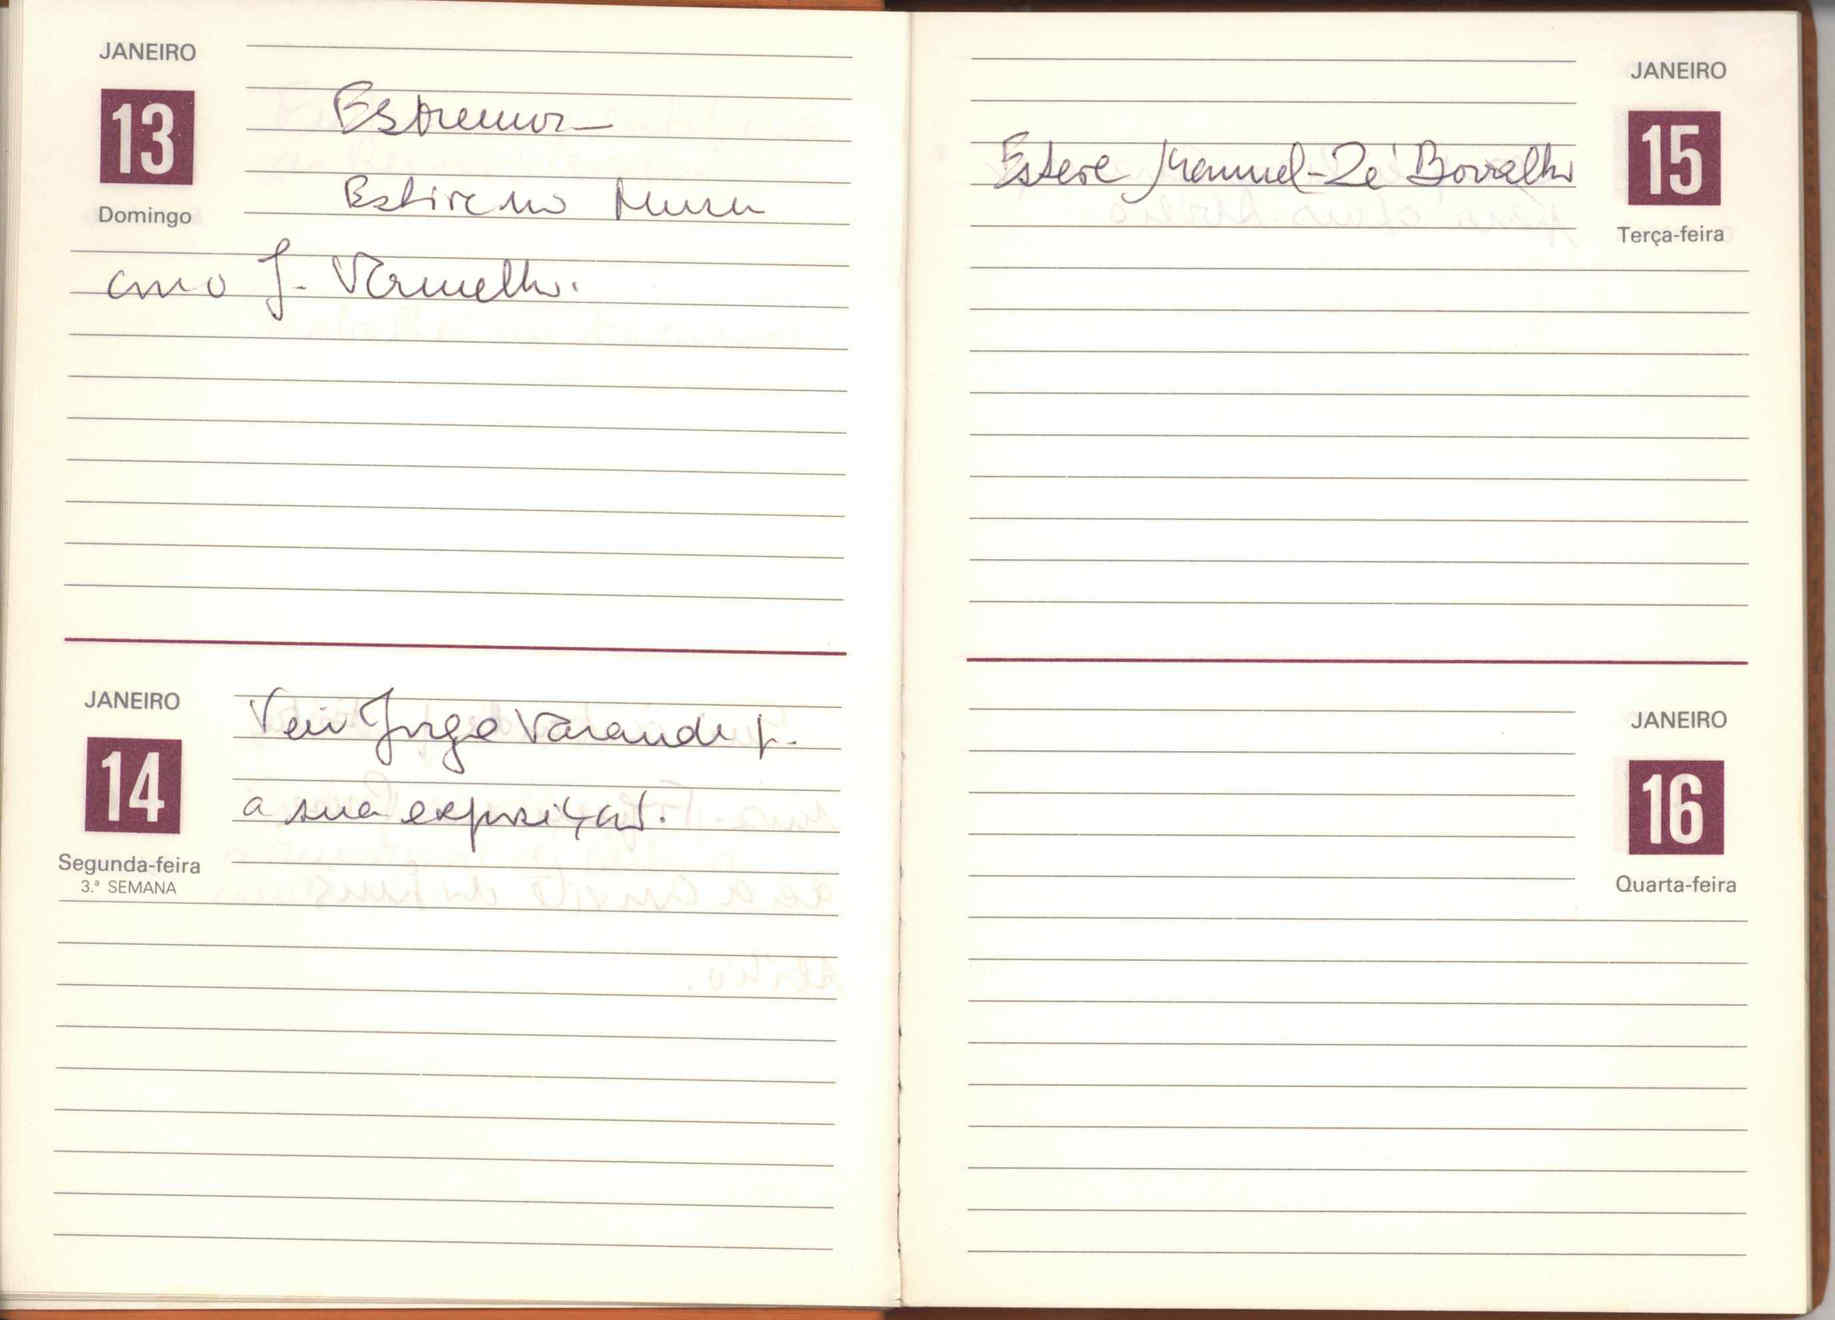 JANEIRO
13
Domingo
Estremoz –
Estive no Museu
com o J. Vermelho.
JANEIRO
14
Segunda-feira
3.ª SEMANA
Veio Jorge Varanda p.
a sua exposição.
JANEIRO
15
Terça-feira
Esteve Manuel-Zé Borralho
JANEIRO
16
Quarta-feira